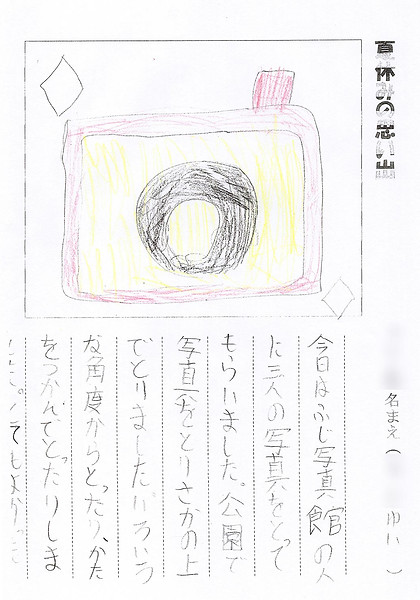 夏休みの思い出
名まえ( ゆい )
今日はふじ写真館の人
に三人の写真をとって
もらいました。公園で
写真をとりさかの上
でとりました。いろいろ
な角度からとったり、かた
をつかんでとったりしま
した。とてもよかったで